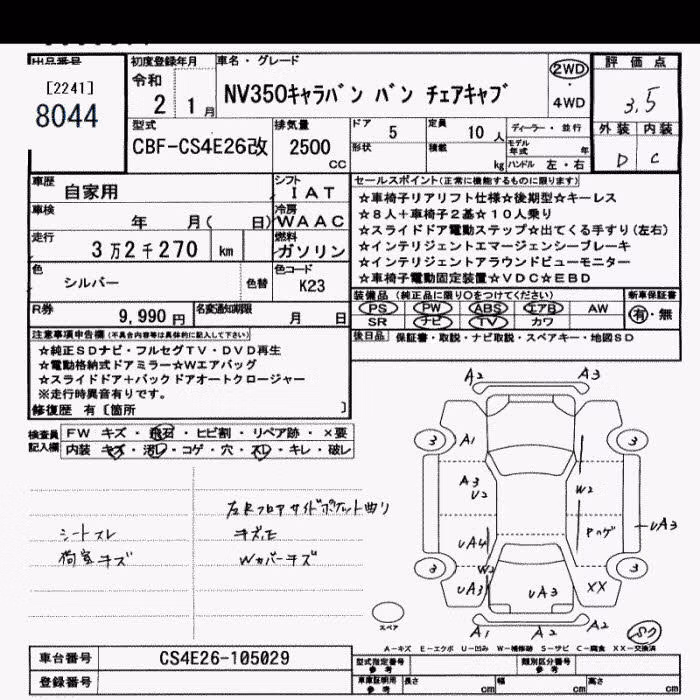 出品番号
[2241]
8044
初度登録年月
令和
2 1月
車名・グレード
NV350キャラバン バン チェアキャブ
2WD
・
4WD
評価点
3.5
型式
CBF-CS4E26改
排気量
2500
CC
ドア 5
定員 10人
ディーラー・並行
形状
積載 kg
モデル年式 年
ハンドル 左・右
外装 内装
D C
車歴 自家用
シフト
IAT
車検 年 月( 日)
冷房
WAAC
走行 3万2千270 km
燃料
ガソリン
色 シルバー 色替
色コード
K23
R券 9,990円
名変通知期限 月 日
セールスポイント(正常に機能するものに限ります)
☆車椅子リアリフト仕様☆後期型☆キーレス
☆8人+車椅子2基☆10人乗り
☆スライドドア電動ステップ☆出てくる手すり(左右)
☆インテリジェントエマージェンシーブレーキ
☆インテリジェントアラウンドビューモニター
☆車椅子電動固定装置☆VDC☆EBD
装備品 (純正品に限り○をつけてください)
PS PW ABS エアB AW
SR ナビ TV カワ
新車保証書
有・無
後日品 保証書・取説・ナビ取説・スペアキー・地図SD
注意事項申告欄(不具合内容等は具体的に記入して下さい)
☆純正SDナビ・フルセグTV・DVD再生
☆電動格納式ドアミラー☆Wエアバッグ
☆スライドドア+バックドアオートクロージャー
※走行時異音有りです。
修復歴 有〔箇所 〕
検査員記入欄
FW キズ・飛石・ヒビ割・リペア跡・×要
内装 キズ・汚レ・コゲ・穴・スレ・キレ・破レ
シートスレ
荷室キズ
キズ凹
Wカバーキズ
A2 A3
3 A1 3
A3
U2
W2
UA4
Pハゲ
UA3
3 W2 3
UA3 UA3 XX
スペア
A1 A2 A2
A-キズ E-エクボ U-凹み W-補修跡 S-サビ C-腐食 XX-交換済
車台番号 CS4E26-105029
登録番号
型式指定番号
参考
類別区分番号
参考
車庫証明用
参考
長さ cm 幅 cm 高さ cm